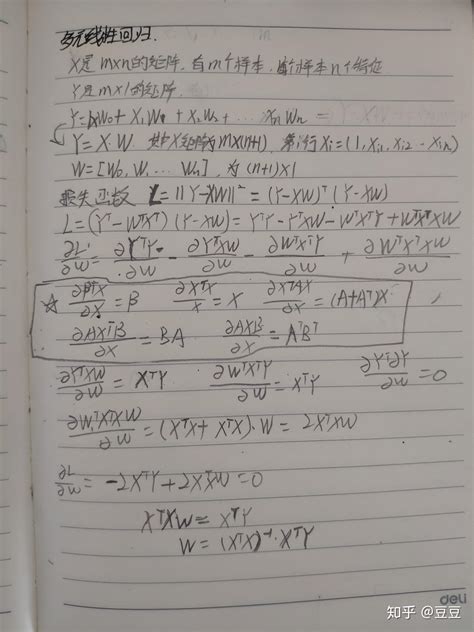 多元线性回归.
X是 m×n的矩阵, 有m个样本, 每个样本n个特征
Y是 m×1的矩阵.
Y=XW₀+X₁W₁+X₂W₂+...XₙWₙ
Y=X·W 其中X矩阵为m×(n+1), 第i行Xi=(1,Xi₁,Xi₂…Xin)
W=[W₀,W₁…Wₙ], 为(n+1)×1
损失函数 L=||Y-XW||²=(Y-XW)ᵀ(Y-XW)
L=(Yᵀ-WᵀXᵀ)(Y-XW)=YᵀY-YᵀXW-WᵀXᵀY+WᵀXᵀXW
∂L/∂W=∂YᵀY/∂W-∂YᵀXW/∂W-∂WᵀXᵀY/∂W+∂WᵀXᵀXW/∂W
☆ ∂BᵀX/∂X=B ∂XᵀX/X=X ∂XᵀAX/∂X=(A+Aᵀ)X
∂AXᵀB/∂X=BA ∂AXB/∂X=AᵀBᵀ
∂YᵀXW/∂W=XᵀY ∂WᵀXᵀY/∂W=XᵀY ∂YᵀY/∂W=0
∂WᵀXᵀXW/∂W=(XᵀX+XᵀX)·W=2XᵀXW
∂L/∂W=-2XᵀY+2XᵀXW=0
XᵀXW=XᵀY
W=(XᵀX)⁻¹·XᵀY
deli
知乎 @豆豆